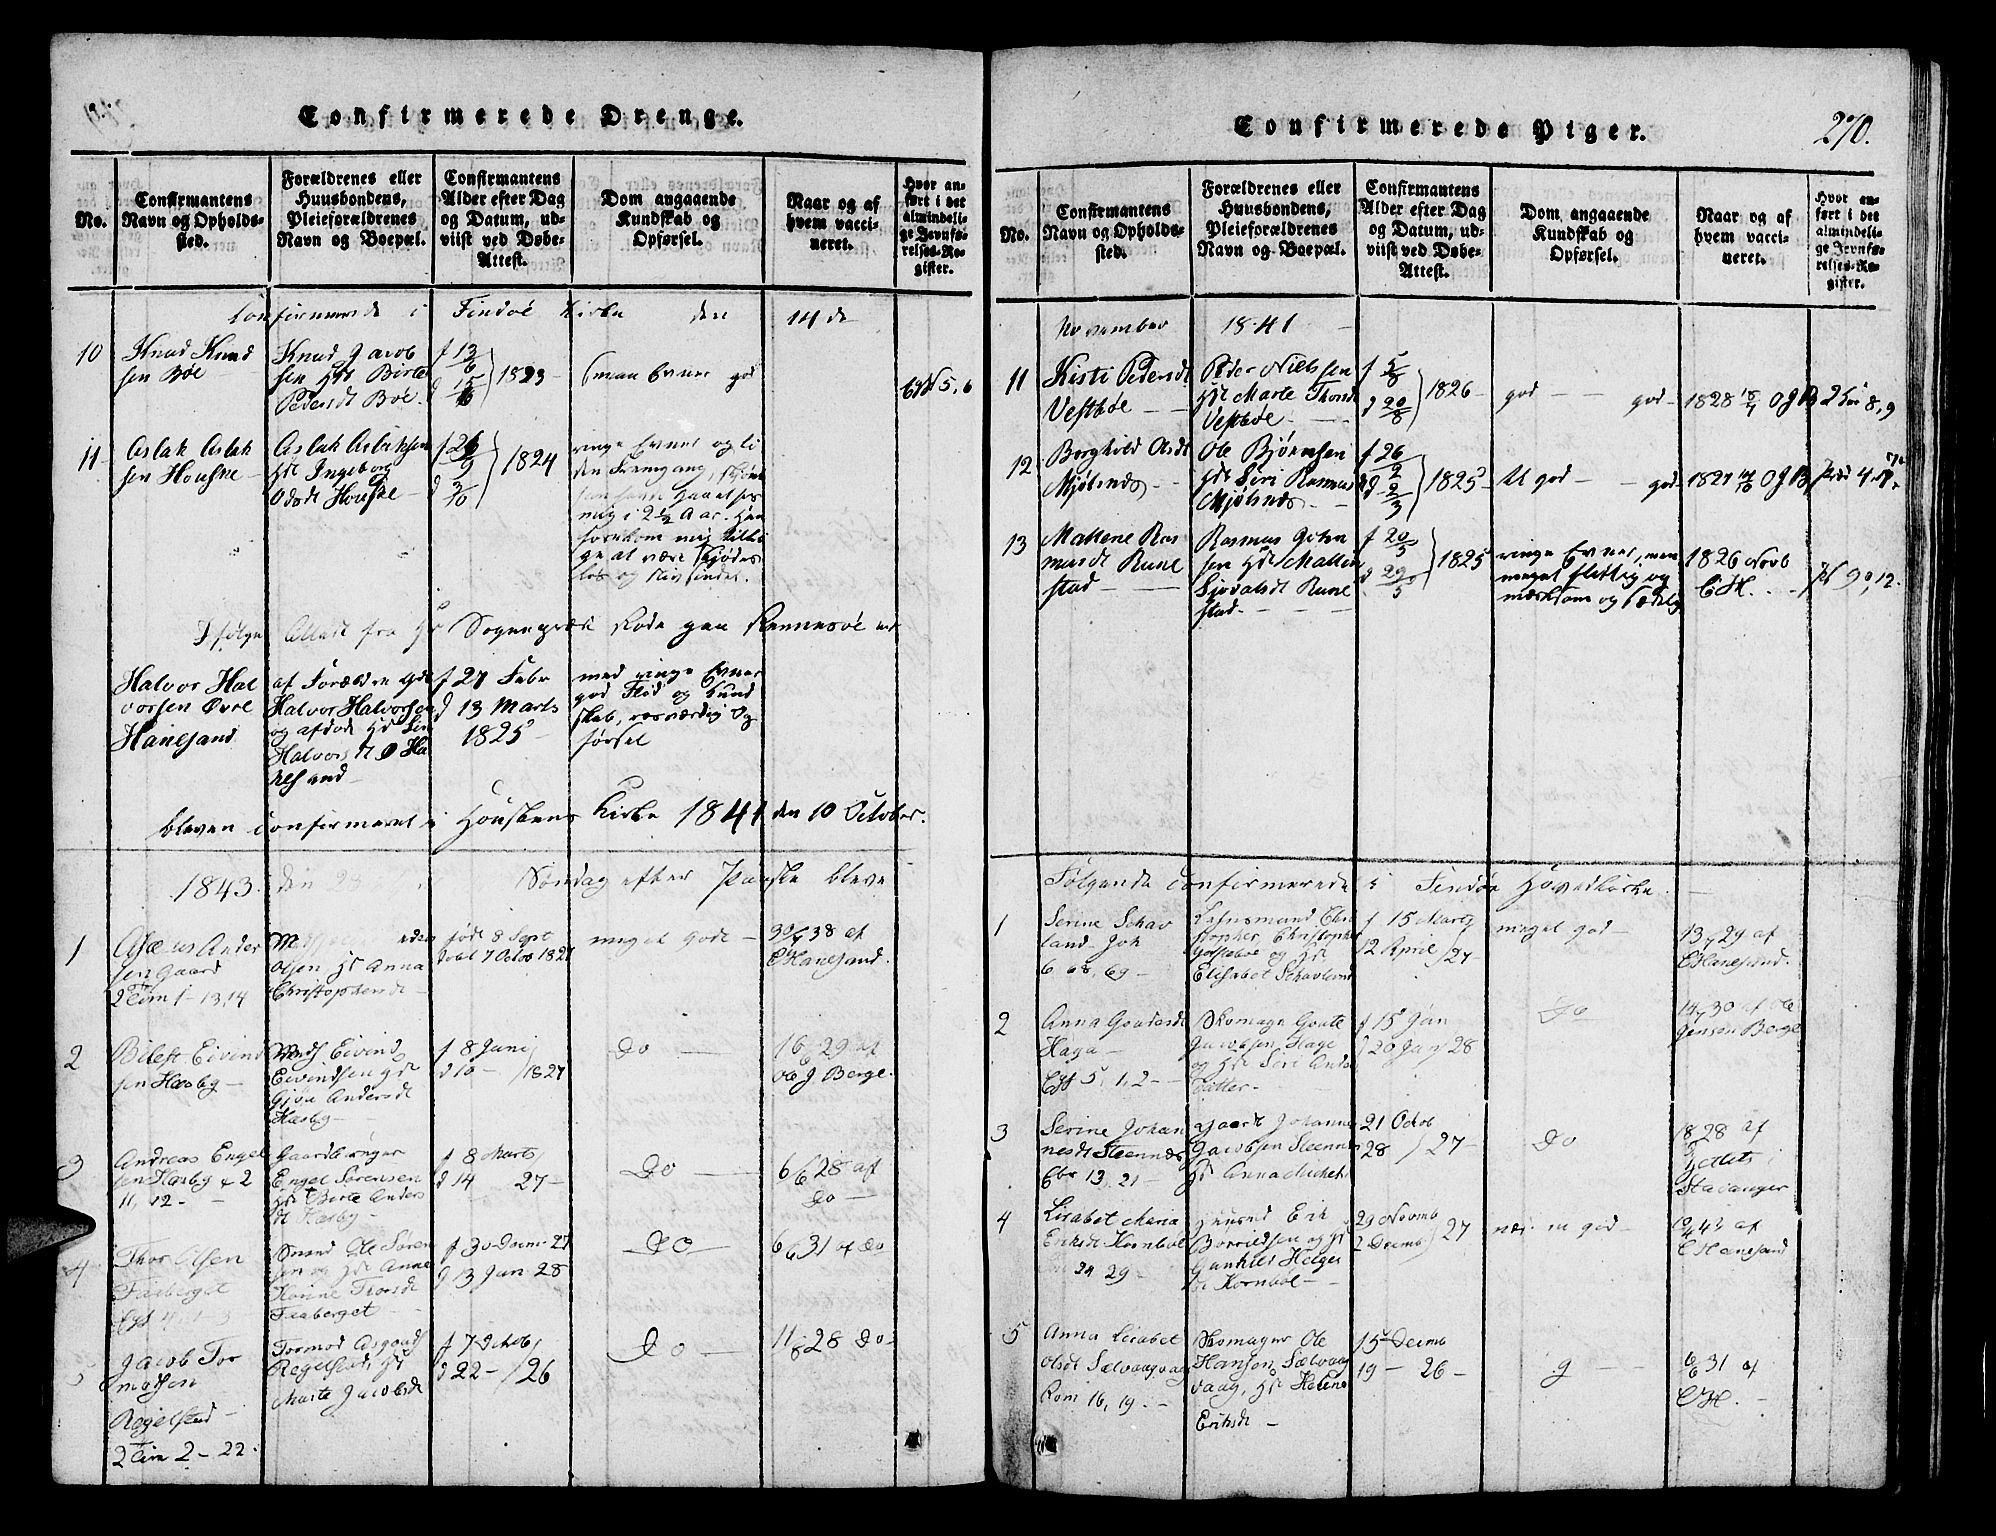 Confirmerede Drenge.
No.
Confirmantens
Navn og Opholds-
sted.
Forældrenes eller
Huusbondens,
Pleieforældrenes
Navn og Boepæl.
Confirmantens
Alder efter Dag
og Datum, ud-
viist ved Døbe-
Attest.
Dom angaaende
Kundskab og
Opførsel.
Naar og af
hvem vacci-
neret.
Hvor an-
ført i det
almindeli-
ge Jevnfø-
relses-Re-
gister.
Confirmerede i Findöe Kirke den 14 de
10
Knud Knud
sen Bøe
Knud Jacob
sen Hst Birte
Pedersdt Boe.
f 13/6
d 15/6
1823
smaa Evner god
5,6
11
Aslak Aslak
sen Houske
Aslak Aslaksen
Hst Ingeborg
Odsdt Houske
f 26/9
d 3/10
1824
ringe Evner og li
den Fremgang, skjön
mig i 2 1/2 Aar. Han
forekom mig
ge at være skjødes
løs og stivsindet.
Ifølge Attest fra Hr Sogneprest Rode paa Rennesöe
Halvor Hal
vorsen Øvre
Hanesand
af Forældre Gdr
Halvor Halvorsen
og afdøde Hst Siri
Halvorsdt Ø Ha
nesand
f 27 Febr
d 13 Marts
1825
med ringe Evner
god Flid og Kund
skab, rosværdig Op
førsel
bleven confirmeret i Houskens Kirke 1841 den 10 October.
1843. den 23 Söndag efter Paaske bleve
1
Asseus Ander
sen Gaard
2 Tim 1-13,14
Olsen Hst Anna
Christophersdt
født 8 Sept
døbt 7 Octob 1827
meget godt
30/6 38 af
C Hanesand.
2
Eivind
sen Hæsby
Eivind
Eivindsen Hst
Gjøa Andersdt
Hæsby
f 8 Juni
d 10 - /1827
Do
16/6 29 af
Ole J Berge.
3
Andreas Engel
sen Hæsby
11, 12 -
Gaardbruger
Engel Sørensen
Hst Berte Anders
dt Hæsby
f 8 Marts
d 14 27 -
Do
6/6 28 af
Do
4
Thor Olsen
Faaberget
Ole Søren
sen og Hst Anne
Karine Thorsdt
Faaberget
f 30 Decmr 27
d 13 Jan 28
Do
6/6 31 af Do
5
Jacob Tor
modsen
Regelstad
2 Tim 2 - 22.
Tormod Asgauds
Regelstad, Hst
Marte Jacobsdt
f 7 Octob
d 22 - /26
Do
11/8 28 Do
Confirmerede Piger.
270.
No.
Confirmantens
Navn og Opholds-
sted.
Forældrenes eller
Huusbondens,
Pleieforældrenes
Navn og Boepæl.
Confirmantens
Alder efter Dag
og Datum, ud-
viist ved Døbe-
Attest.
Dom angaaende
Kundskab og
Opførsel.
Naar og af
hvem vacci-
neret.
Hvor an-
ført i det
almindeli-
ge Jevnfø-
relses-Re-
gister.
November 1841
11
Kisti Pedersdt
Vestbøe
Peder Nielssen
Hst Marte Thorsd
Vestbøe
f 5/8
d 20/8
1826
god god
1828 18/7 OJB
8,9
12
Borghild Olsdt
Mjølsnæs
Ole Bjørnsen
Hst Siri Rasmus
Mjølsnæs
f 26/2
d 2/3
1825
M god god
1827 OJB
13
Mallene Ras
musdt Rune
stad
Rasmus Gitm
sen Hst Mallene
Sjovalsdt Rune
stad
f 20/5
d 29/5
1825
ringe Evner, men
meget flittig og
mærksom og sædelig
1826 Novb
CH.
90,12.
Følgende confirmerede i Findöe Hovedkirke
1
Serine Schav
land Joh
6 68,69
Lehnsmand Chri
stopher Christopher
Godtsbøe og Hst
Elisabet Schavland
f 15 Marts
12 April /27
meget god
13/7 29 af
C Hanesand.
2
Anna Goudesdt
Haga
Eph 5, 1,2
Skomager Goute
Jacobsen Hage
og Hst Siri Anders
datter
f 15 Jan
d 20 Jan 28
Do
14/7 30 af Ole
Jensen Berge
3
Serine Johan
nesdt Steennæs
Ebr 13, 21
Gaardr Johannes
Jacobsen Steennæs
Hst Anna Mickels
21 Octob
28 / 27
Do
18/7 28 af
Stavanger
4
Lisabet Maria
Eriksdt Kornbøe
24 29
Huusmd Erik
Borrildsen og Hst
Gunhild Helges
dt Kornbøe
29 Novemb
2 Decmb / 27
god
19/4 43 af
C Hanesand
5
Anna Lisabet
Olsdt Sælvaagvaag
Rom 16, 19.
Skomager Ole
Hansen Sælvaag
vaag, Hst Helene
Eriksdt
15 Decmb
19 - 26
g
6/6 31 af
CH.